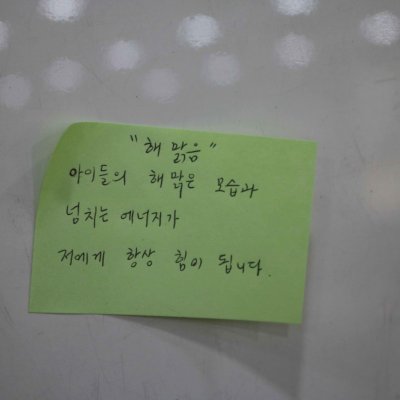 "해 맑음"
아이들의 해 맑은 모습과
넘치는 에너지가
저에게 항상 힘이 됩니다.